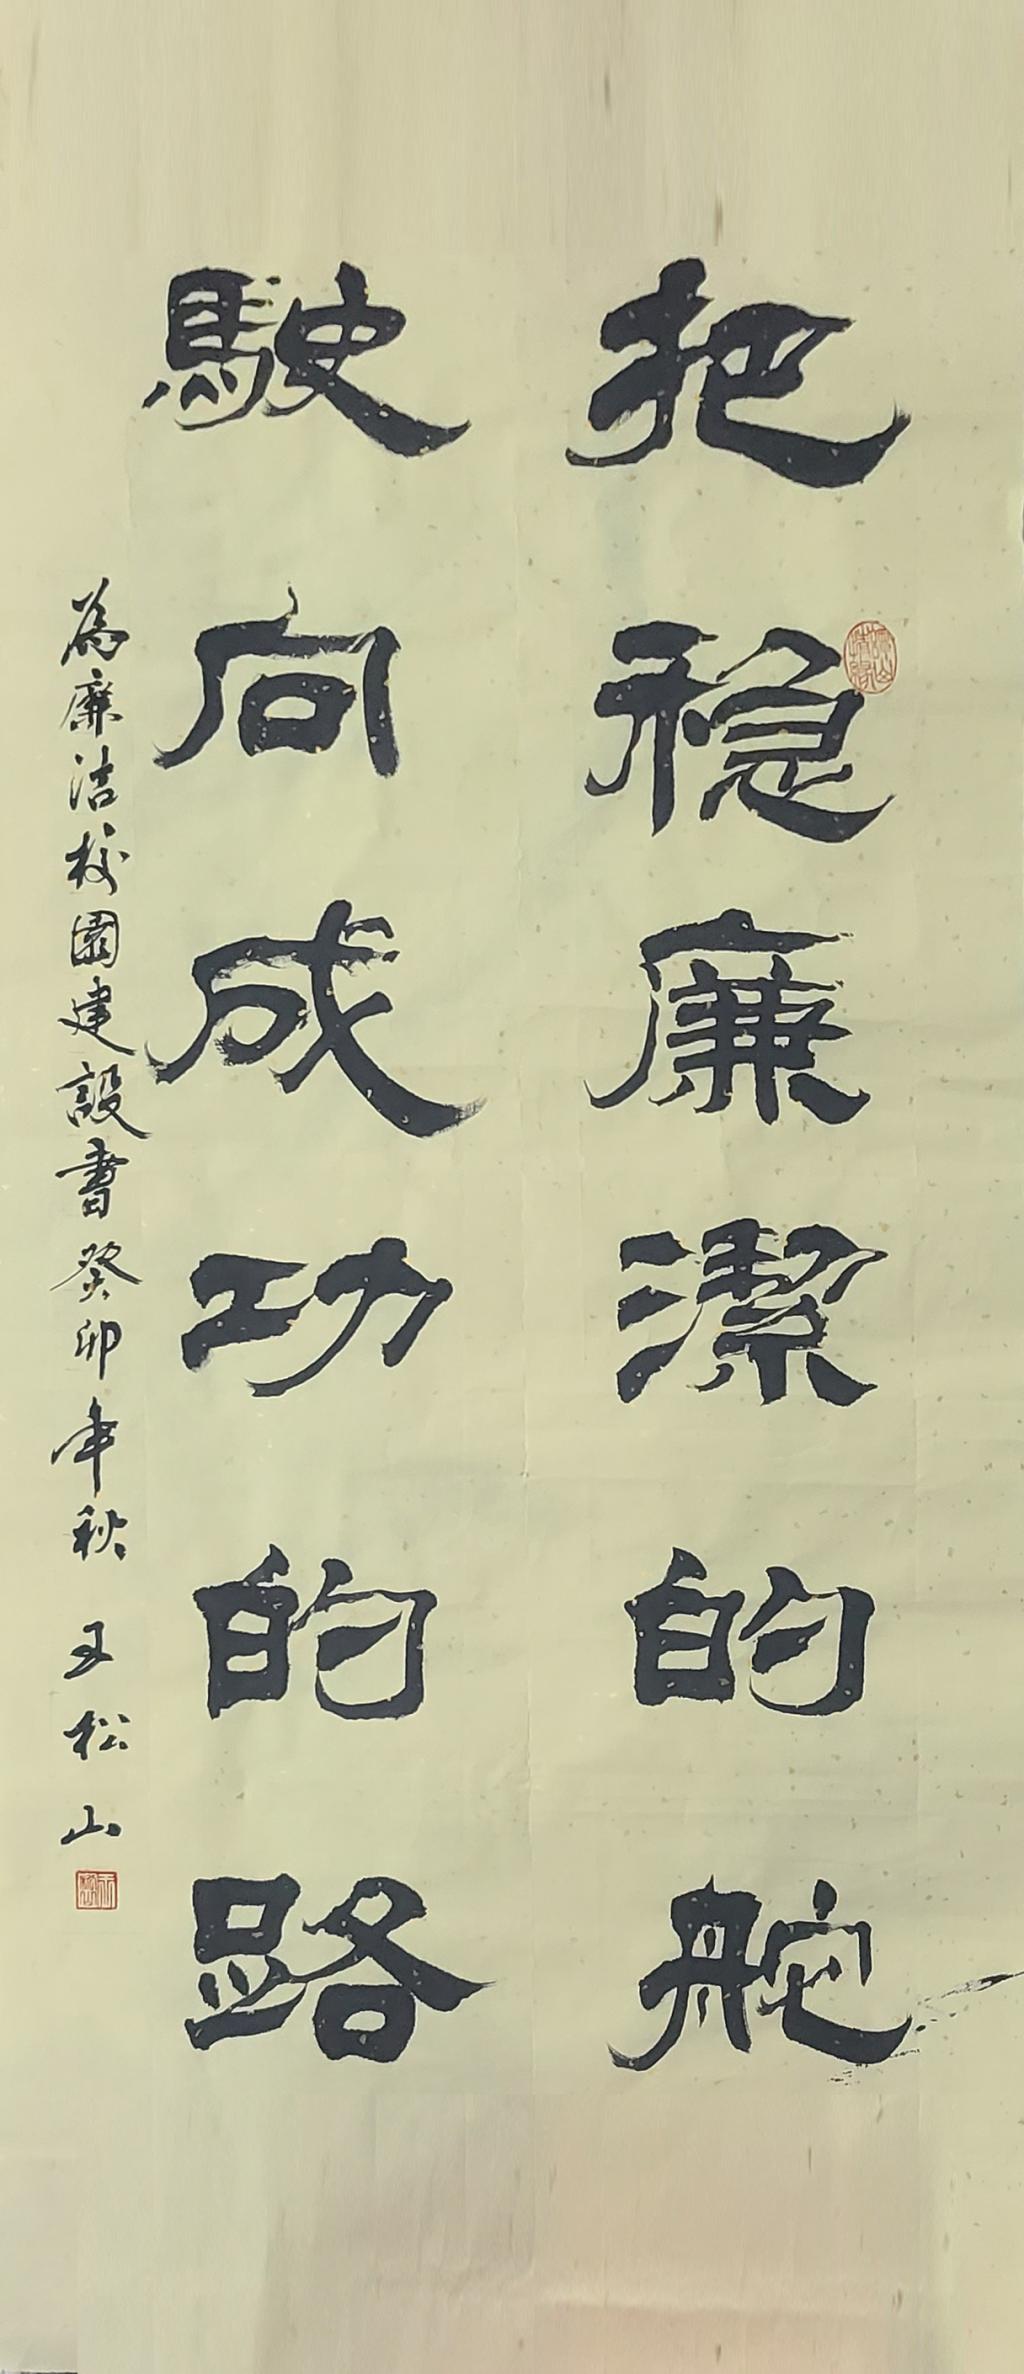 把稳廉潔的舵
駛向成功的路
為廉洁校園建設書癸卯年秋 王松山